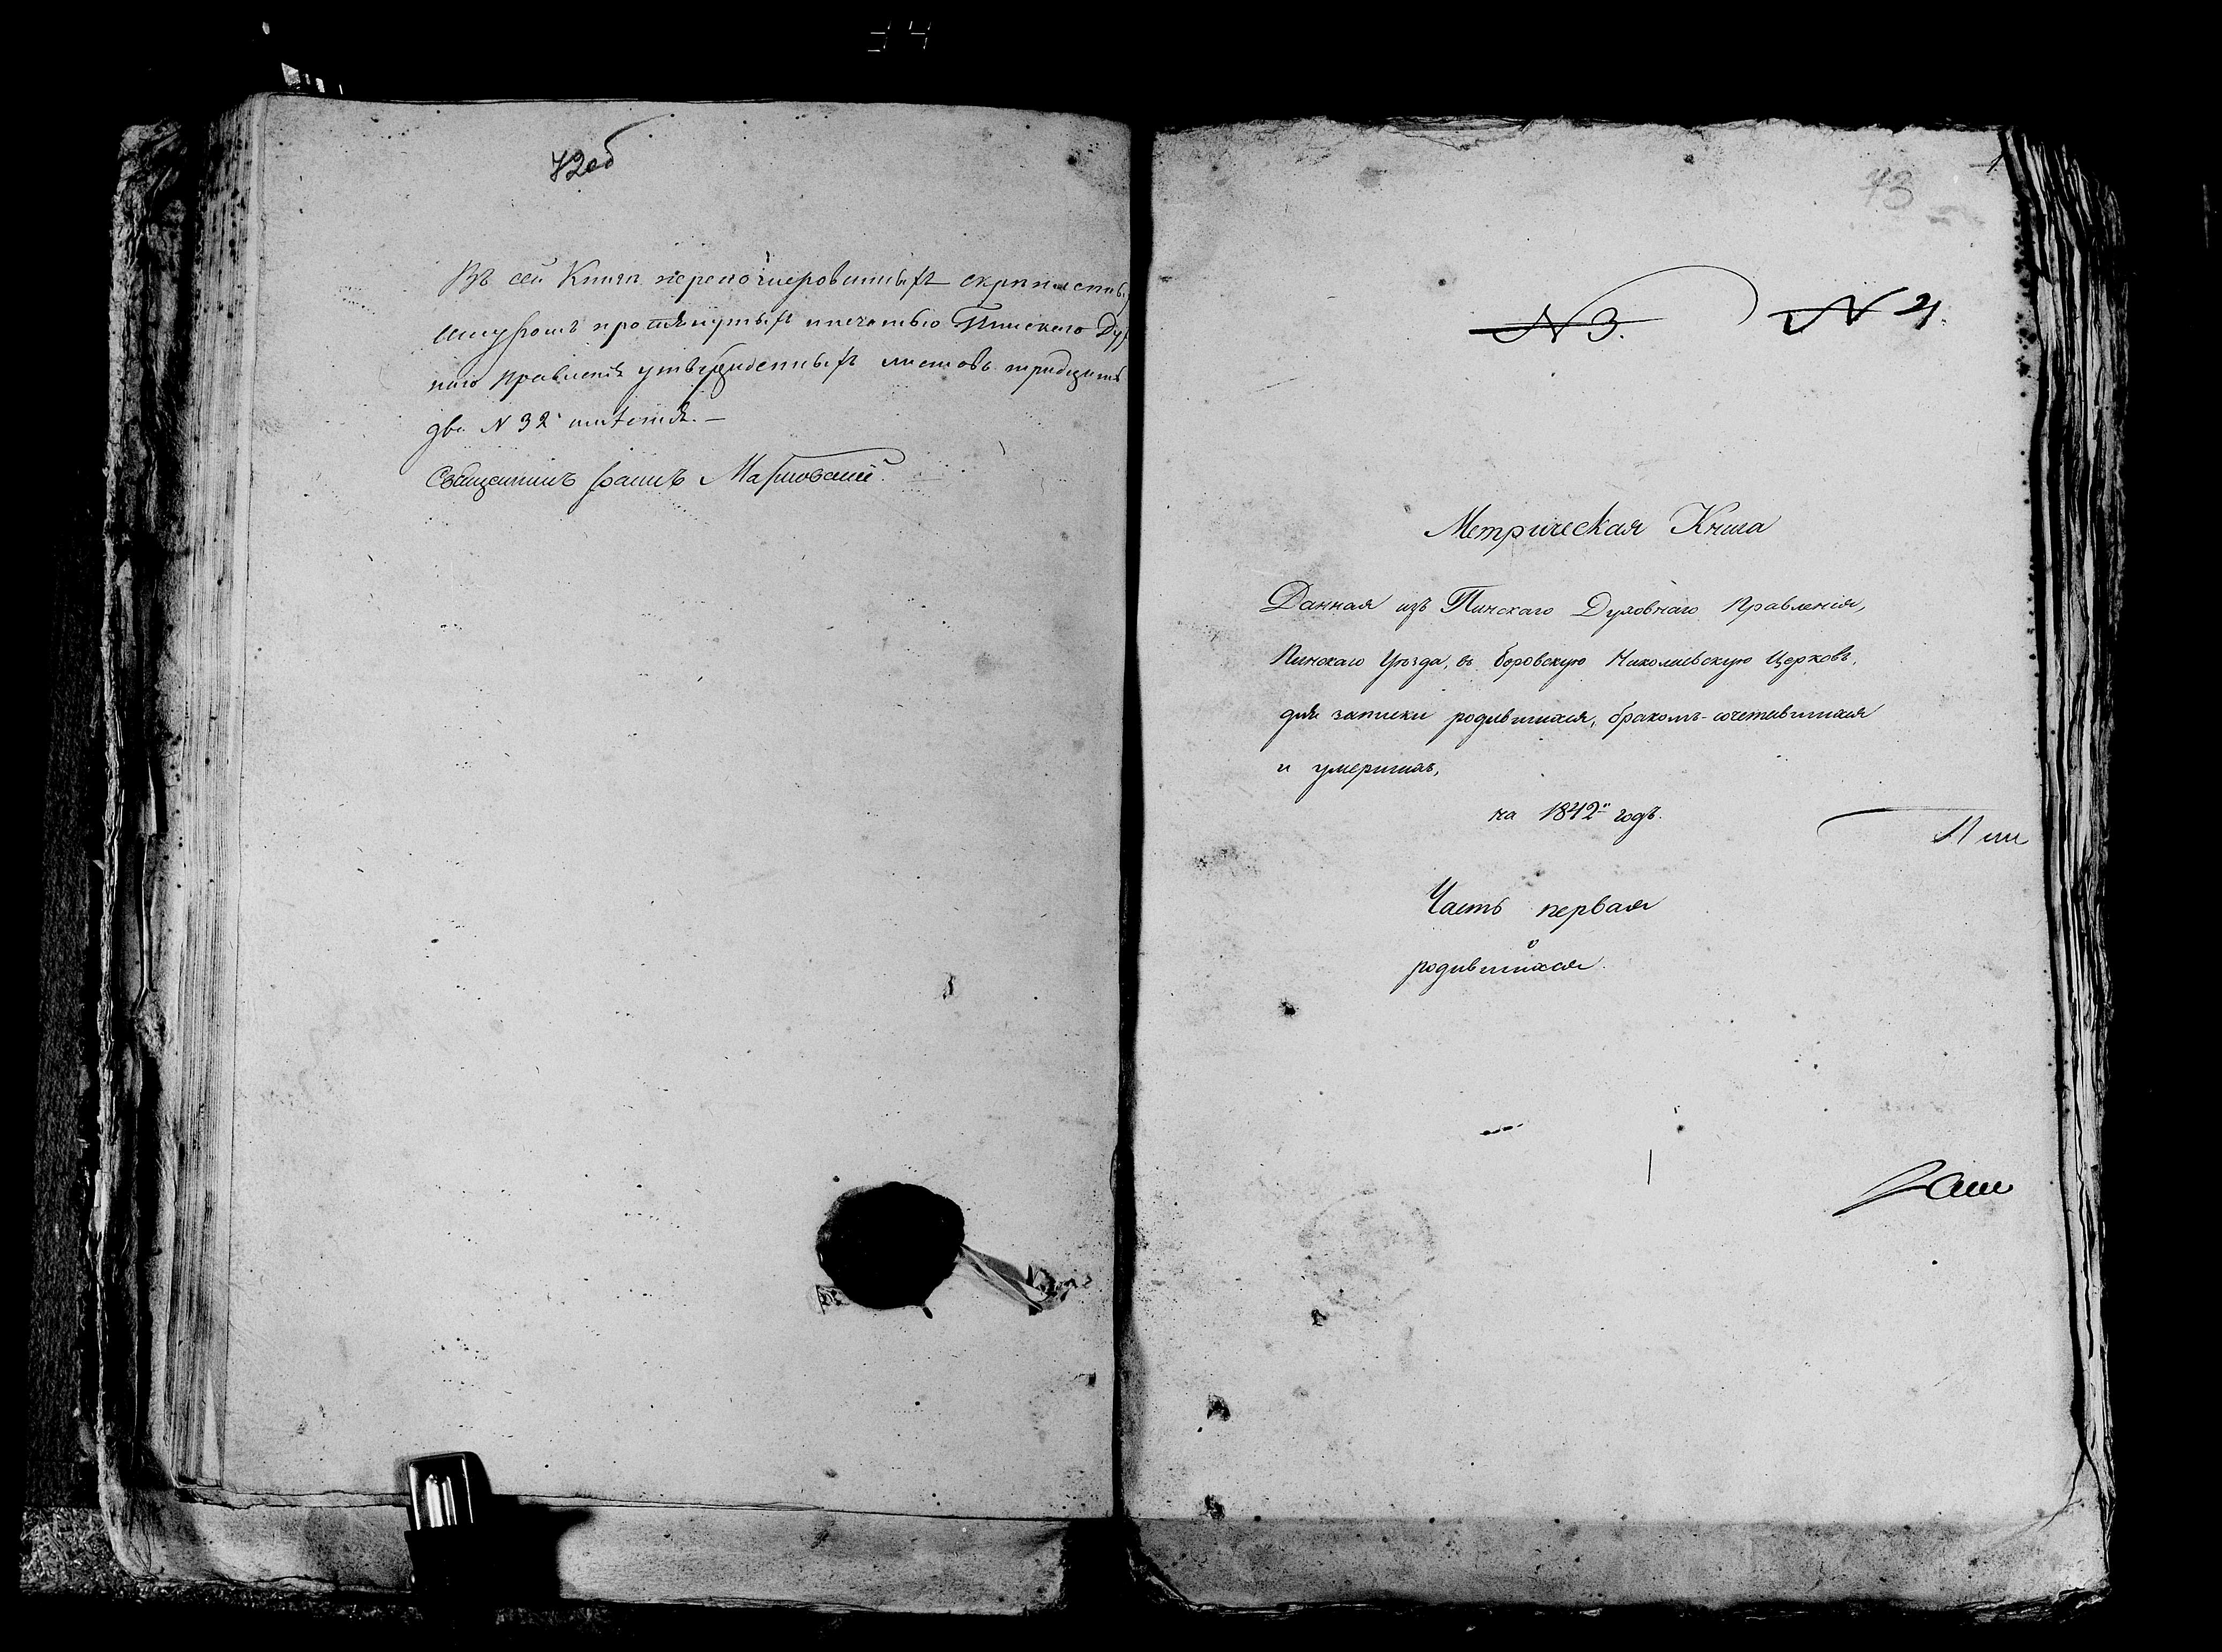 34
72об
Въ сей Книгѣ перенумерованныхъ скрѣпленны
шнуромъ протянутыхъ и печатью Пинскаго Дух
наго Правленія утвержденныхъ листовъ тридцать
два N 32
Священникъ Марновскій.
73
N 3. N 4.
Метрическая Книга
Данная изъ Пинскаго Духовнаго Правленія,
Пинскаго Уѣзда, въ Боровскую Николаевскую Церковь,
для записки родившихся, бракомъ-сочетавшихся
и умершихъ,
на 1842й годъ.
Часть первая
о
родившихся.